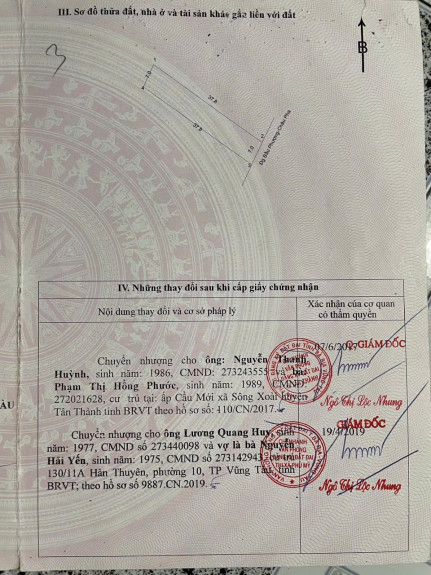 III. Sơ đồ thửa đất, nhà ở và tài sản khác gắn liền với đất
3
B
7.0
37.8
37.8
7.0
IV. Những thay đổi sau khi cấp giấy chứng nhận
Nội dung thay đổi và cơ sở pháp lý
Xác nhận của cơ quan
có thẩm quyền
Chuyển nhượng cho ông: Nguyễn Thanh
Huỳnh, sinh năm: 1986, CMND: 273243555 và bà:
Phạm Thị Hồng Phước, sinh năm: 1989, CMND:
272021628, cư trú tại: ấp Cầu Mới xã Sông Xoài huyện
Tân Thành tỉnh BRVT theo hồ sơ số: 410/CN/2017.
07/6/2017
GIÁM ĐỐC
Ngô Thị Lộc Nhung
Chuyển nhượng cho ông Lương Quang Huy, sinh
năm: 1977, CMND số 273440098 và vợ là bà Nguyễn
Hải Yến, sinh năm: 1975, CMND số 273142943 cư trú
130/11A Hàn Thuyên, phường 10, TP Vũng Tàu, tỉnh
BRVT; theo hồ sơ số 9887.CN.2019.
19/4/2019
GIÁM ĐỐC
CHI NHÁNH
VĂN PHÒNG
ĐĂNG KÝ ĐẤT ĐAI
THỊ XÃ PHÚ MỸ
Ngô Thị Lộc Nhung
ÀU